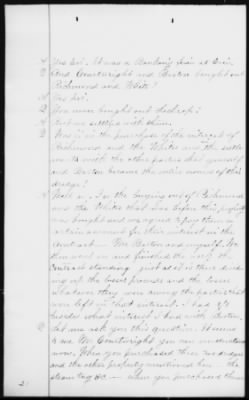 A Yes Sir. It was a Banking firm at Erie.
Q And Courtwright and Barton bought out
Richmond and White?
A Yes Sir.
Q You mean bought out dredges?
A that was settled with them.
Q Was it in the purchase of the interest of
Richmond and the White and the settle-
ment with the other parties that yourself
and Barton became the entire owners of this
dredge?
A Well, in the buying out of Richmond
and the White that was before this judgt
was bought and we agreed to pay them a
certain amount for their interest in the
Contract — Mr Barton and myself. We
then went on and finished the
Contract standing just as it is there divid-
ing up the losses
whatever they were among the parties that
were left in that interest. I had
besides what interest I had with Barton.
Q Let me ask you this question. It seems
to me Mr. Courtwright you can understand
now. When you purchased these two dredges
and the other property mentioned here — the
steam tug &c. — when you purchased them